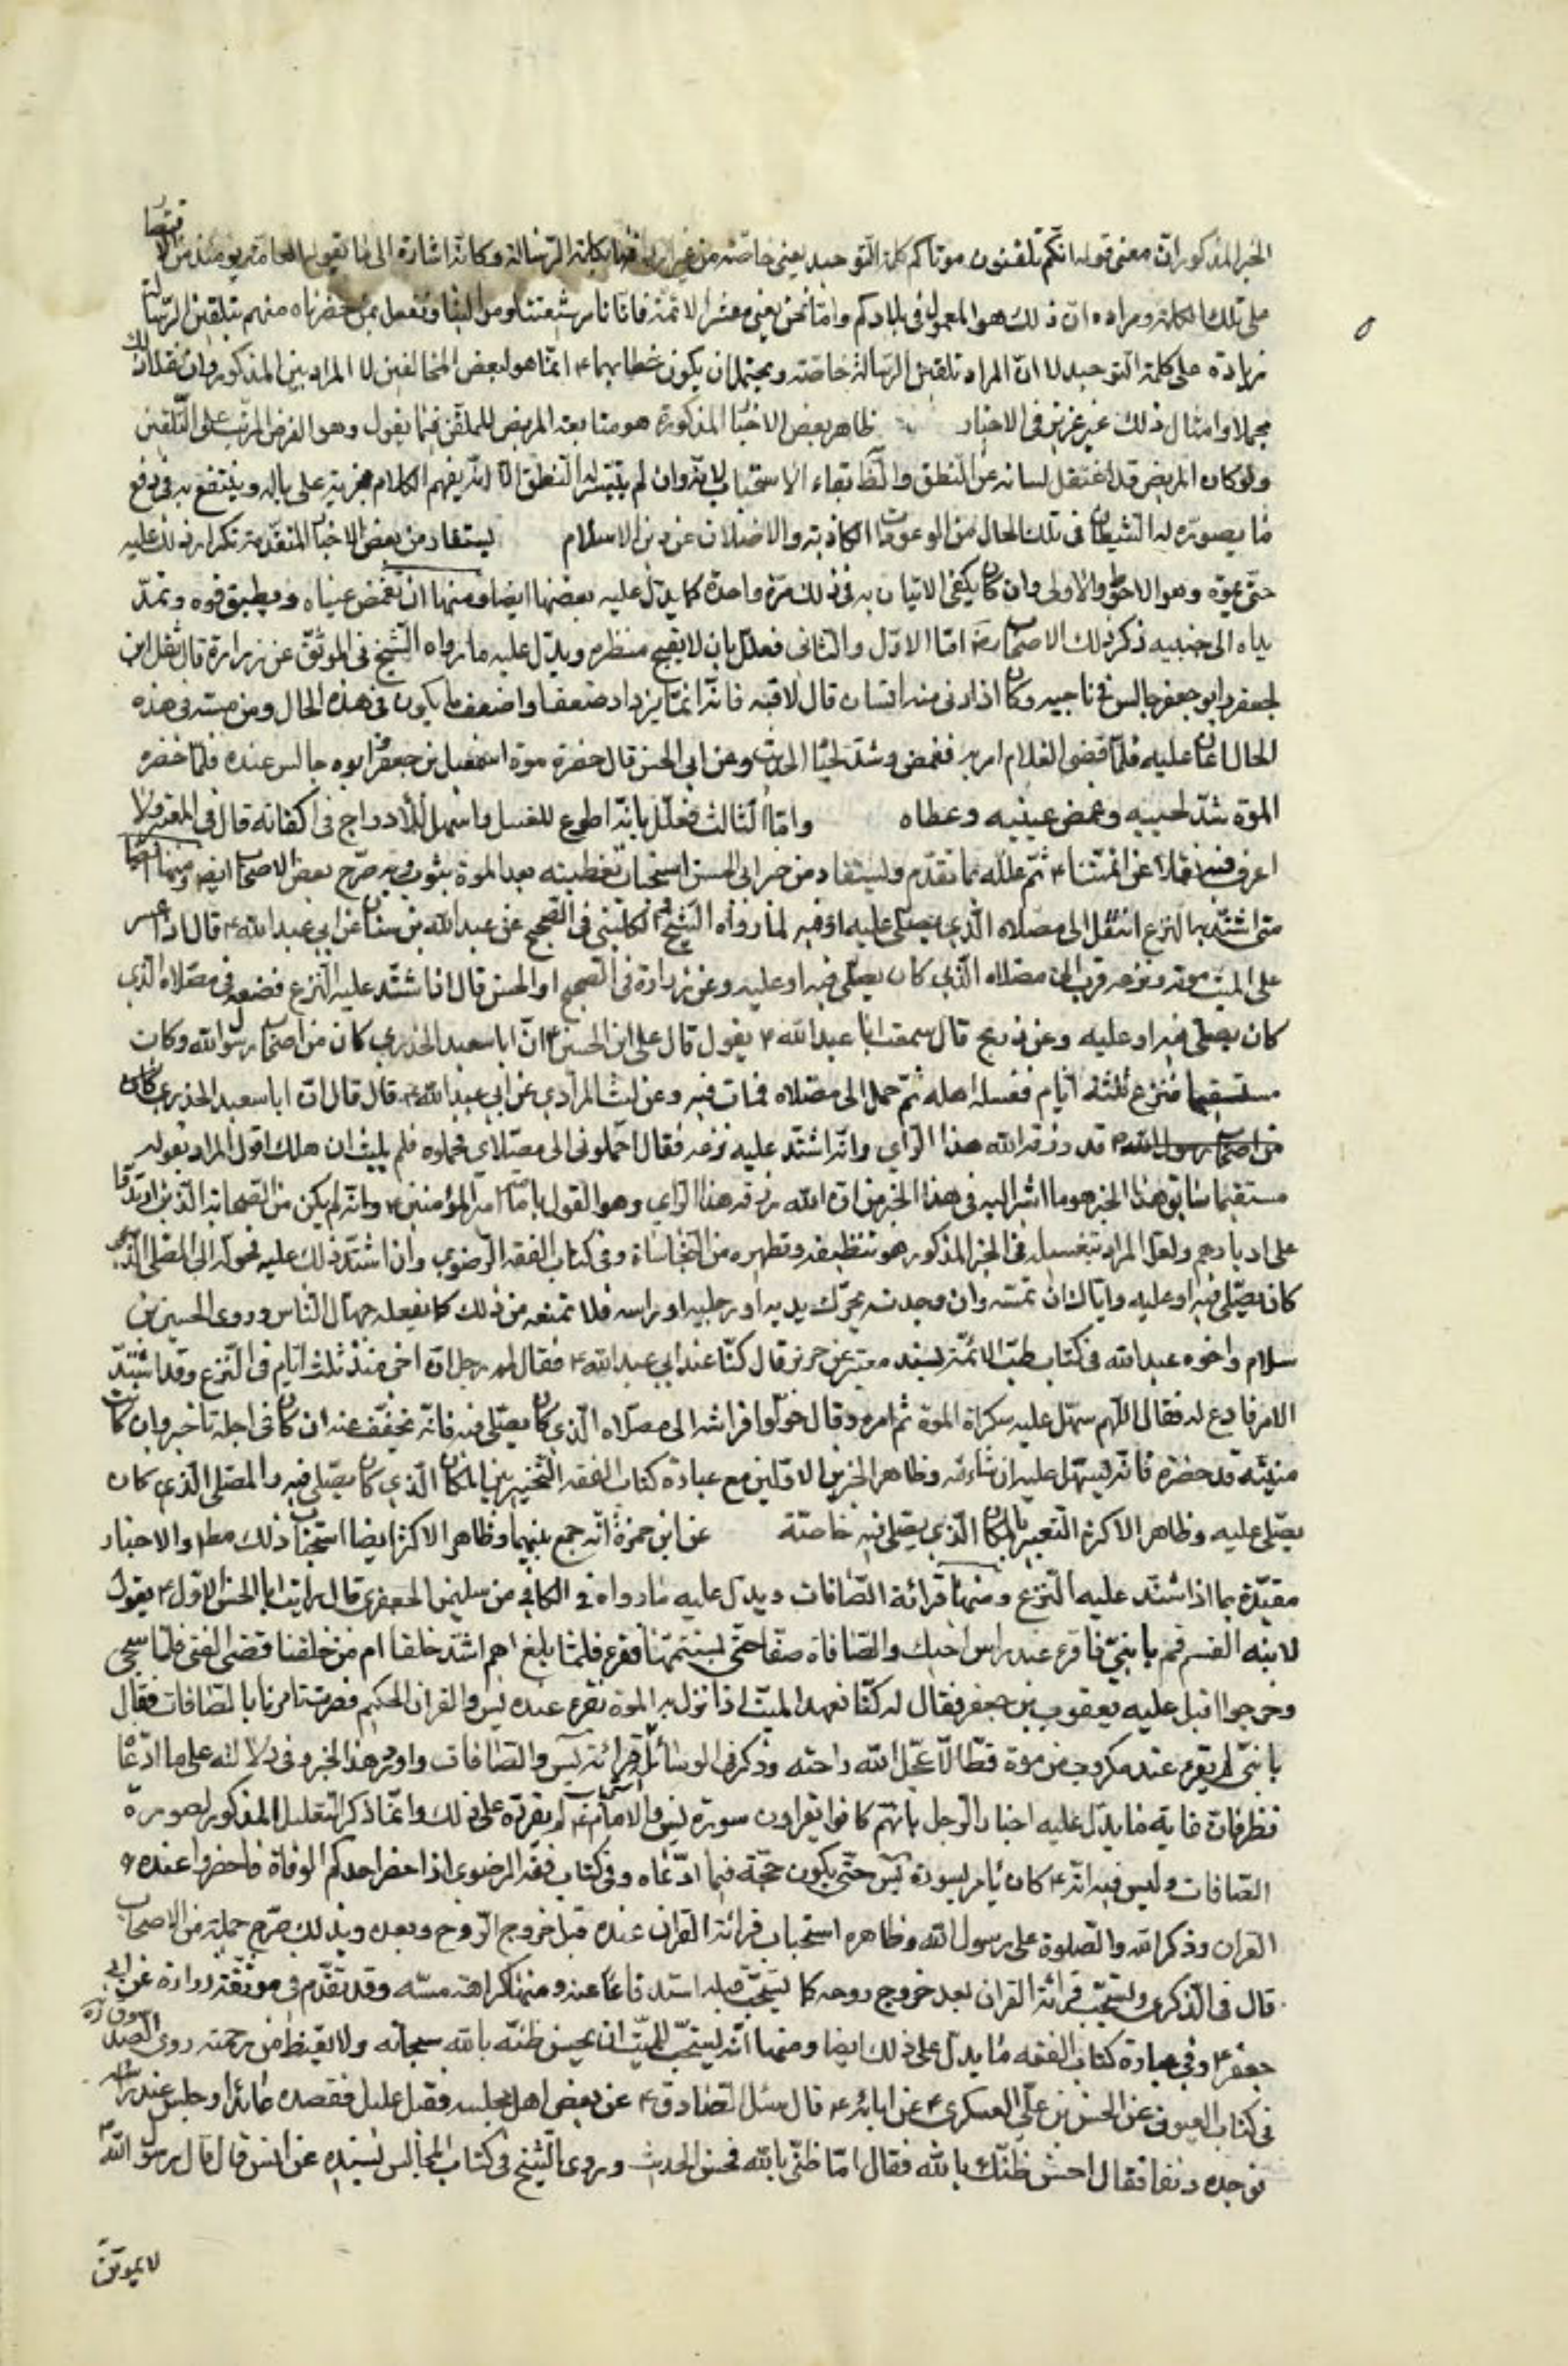 الخبر المذكور انّ معنى قوله انكم تلقنون موتاكم كلمة التوحيد يعني خاصّة من غير اردافها بكلمة الرّسالة وكانّه اشارة الى ما يقوله العامّة يومئذ من الاقتصار
على تلك الكلمة ومراده انّ ذلك هو المعمول في بلادكم وامّا نحن يعني معشر الائمّة فانّا نامر شيعتنا وموالينا ونفعل بمن حضرناه منهم بتلقين الرّسالة
زيادة على كلمة التوحيد لا انّ المراد تلقين الرّسالة خاصّة ويحتمل ان يكون خطابهما ع انّما هو لبعض المخالفين لا المراديين المذكور وان نقلا ذلك
مجملا وامثال ذلك غير عزيز في الاخبار ظاهر بعض الاخبار المذكورة هو متابعة المريض للملقّن فيما يقول وهو الغرض المرتّب على التّلقين
ولو كان المريض قد اعتقل لسانه عن النطق والظّ بقاء الاستحباب لانّه وان لم يتيسّر له التنطّق الّا انّه يفهم الكلام فيجريه على باله وينتفع به في دفع
ما يصوّره له الشيطان في تلك الحال من الوعودات الكاذبة والاضلال عن دين الاسلام يستفاد من بعض الاخبار المتقدّمة تكرار ذلك عليه
حتّى يموت وهو الاحوط والاولى وان كان يكفي الاتيان به في ذلك مرّة واحدة كما يدلّ عليه بعضها ايضا ومنها ان تغمض عيناه ويطبق فوه وتمدّ
يداه الى جنبيه ذكر ذلك الاصحاب رض امّا الاوّل والثاني فعلّل بان لا يقبح منظره ويدلّ عليه ما رواه الشيخ في الموثّق عن زرارة قال ثقل ابن
لجعفر وابو جعفر جالس في ناحيه وكان اذا دنى منه انسان قال لا تمسّه فانّه انّما يزداد ضعفا واضعف ما يكون في هذه الحال ومن مسّه في هذه
الحال اعان عليه فلمّا قضى الغلام امر به فغمض وشدّ لحياه الحديث وعن ابي الحسن قال حضره موت اسمعيل بن جعفر ابوه جالس عنده فلمّا حضره
الموت شدّ لحييه وغمض عينيه وغطاه وامّا الثالث فعلّل بانّه اطوع للغسل واسهل للأدراج في اكفانه قال في المعتبر ولا
اعرف فيه نقلا عن ائمّتنا ع ثمّ علّله بما تقدّم ويستفاد من خبر ابي الحسن استحباب تغطيته بعد الموت بثوب وبه صرّح بعض الاصحاب ايضا ومنها انّه
متى اشتدّ به النزع انتقل الى مصلاه الذّي يصلّي عليه او فيه لما رواه الشيخ والكليني في الصحيح عن عبد الله بن سنان عن ابي عبد الله ع قال اذا عسر
على الميت موته ونزعه قرب الى مصلاه الذّي كان يصلّي فيه او عليه وعن زرارة في الصحيح او الحسن قال اذا اشتدّ عليه النزع فضعه في مصلاه الذّي
كان يصلّي فيه او عليه وعن ذريح قال سمعت ابا عبد الله ع يقول قال علي بن الحسين ع انّ ابا سعيد الخدري كان من اصحاب رسول الله وكان
مستقيما فنزع ثلثة ايّام فغسله اهله ثمّ حمل الى مصلاه فمات فيه وعن ليث المرادي عن ابي عبد الله ع قال قال انّ ابا سعيد الخدري كان
من اصحاب رسول الله ص قد رزقه الله هذا الرّاي وانّه اشتدّ عليه نزعه فقال احملوني الى مصلّاي فحملوه فلم يلبث ان هلك اقول المراد بقوله
مستقيما سابق هذا الخبر هو ما اشير اليه في هذا الخبر من انّ الله رزقه هذا الرّاي وهو القول بامامة امير المؤمنين ع وانّه لم يكن من الصحابة الذّين ارتدّوا
على ادبارهم ولعلّ المراد بتغسيله في الخبر المذكور هو تنظيفه وتطهيره من النجاسات وفي كتاب الفقه الرّضوي وان اشتدّ ذلك عليه فحوّله الى المصلى الذّي
كان يصلّي فيه او عليه وايّاك ان تمسّه وان وجدته يحرّك يديه او رجليه او راسه فلا تمنعه من ذلك كما يفعله جهّال النّاس وروى الحسين بن
سلام واخوه عبد الله في كتاب طبّ الائمّة بسنده عن حريز قال كنّا عند ابي عبد الله ع فقال له رجل انّ اخي منذ ثلثة ايّام في النّزع وقد اشتدّ
الامر فادع له فقال اللّهم سهّل عليه سكرات الموت ثم امره وقال حوّلوا فراشه الى مصلّاه الذّي كان يصلّي فيه فانّه يخفّف عنه ان كان في اجله تاخير وان كانت
منيّته قد حضرت فانّه يسهّل عليه ان شاء الله وظاهر الخبرين الاوّلين مع عبارة كتاب الفقه التخيير بين المكان الّذي كان يصلّي فيه والمصلّى الّذي كان
يصلّي عليه وظاهر الاكثر التعبير بالمكان الّذي يصلّي فيه خاصّة عن ابن حمزة انّه جمع بينهما وظاهر الاكثر ايضا استحباب ذلك مطلقا والاخبار
مقيّدة بما اذا اشتدّ عليه النّزع ومنها قرائة الصّافات ويدلّ عليه ما رواه في الكافي عن سليمن الجعفري قال رايت ابا الحسن الاوّل ع يقول
لابنه القسم قم يا بنيّ فاقرء عند راس اخيك والصّافات صفّا حتّى تستتمّها فقرء فلمّا بلغ اهم اشدّ خلقا ام من خلقنا قضى الفتى فلمّا سجى
وخرجوا اقبل عليه يعقوب بن جعفر فقال له كنّا نعهد الميّت اذا نزل به الموت نقرء عنده يس والقران الحكيم فصرت تامرنا بالصّافات فقال
يا بنيّ لم يقرء عند مكروب من موت قطّ الّا عجّل الله راحته وذكر في الوسائل قرائة يس والصّافات واورد هذا الخبر وفي دلالته على ما ادّعاه
نظر فانّ غاية ما يدلّ عليه اخبار الرّجل بانّهم كانوا يقراون سورة يس والامام ع لم يقرّه على ذلك وانّما ذكر التعليل المذكور لسورة
الصّافات وليس فيه انّه ع كان يامر بسورة يس حتّى يكون حجّة فيما ادّعاه وفي كتاب فقه الرضوي اذا حضر احدكم الوفاة فاحضروا عنده
القران وذكر الله والصّلوة على رسول الله وظاهره استحباب قرائة القران عنده قبل خروج الرّوح وبعده وبذلك صرّح جملة من الاصحاب
قال في الذّكرى ويستحبّ قرائة القران بعد خروج روحه كما يستحبّ قبله استدفاعا عنه ومنها كراهة مسّه وقد تقدّم في موثّقة زرارة عن ابي
جعفر ع وفي عبارة كتاب الفقه ما يدلّ على ذلك ايضا ومنها انّه يستحبّ للميّت ان يحسن ظنّه بالله سبحانه ولا يقنط من رحمته روى الصدوق ره
في كتاب العيون عن الحسن بن عليّ العسكري ع عن ابائه ع قال سئل الصّادق ع عن بعض اهل مجلسه فقيل عليل فقصده عائدا وجلس عند راسه
فوجده دنفا فقال احسن ظنّك بالله فقال امّا ظنّي بالله فحسن الحديث وروى الشيخ في كتاب المجالس بسنده عن انس قال قال رسول الله ص
لا يموتنّ